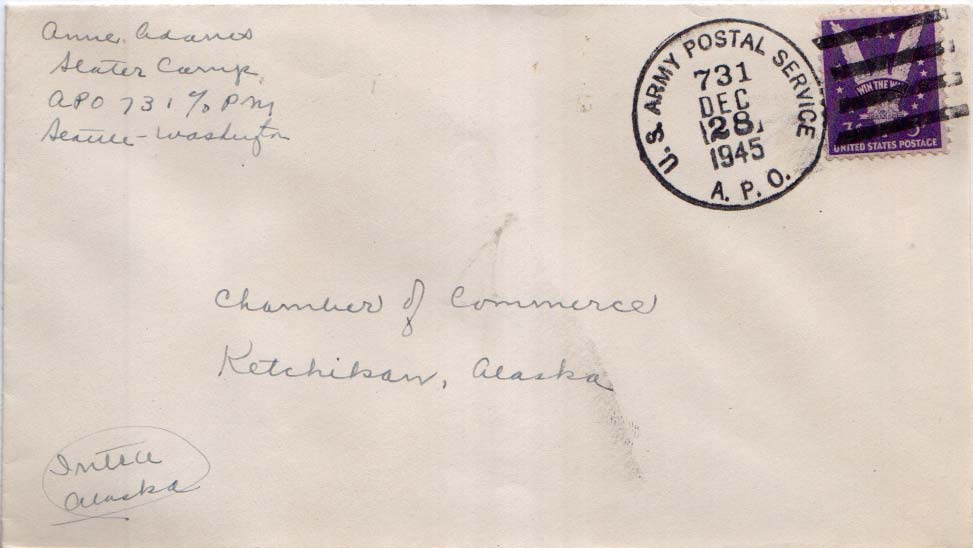 Anne Adams
Slater Camp,
APO 731 c/o P.M
Seattle - Washington
U.S. ARMY POSTAL SERVICE
731
DEC
28
1945
A. P. O.
WIN THE WAR
3c 3c
UNITED STATES POSTAGE
Chamber of Commerce
Ketchikan, Alaska
Alaska